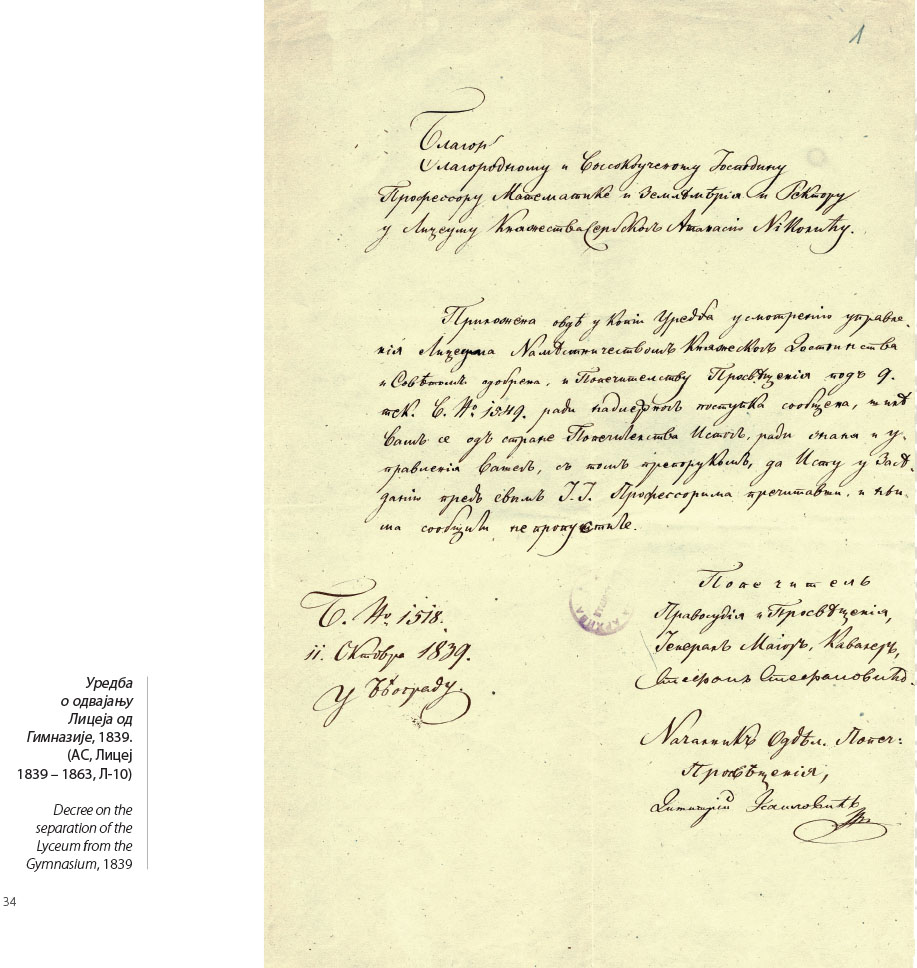 1
Благор
Благородному и Высокоученому Господину
Профессору Математике и Землѣмѣрія и Ректору
у Лицеуму Княжества Сербскогъ Атанасію Николићу.
Приложена овдѣ у копіи Уредба у смотренію управле-
нія Лицеума Намѣстничествомъ Княжескогъ Достоинства
и Совѣтомъ одобрена, и Попечителству Просвѣщенія подъ 9.
тек. Б. № 1549. ради надлежногъ поступка сообщена, шилѣ
Вамъ се одъ стране Попечителства Истогъ, ради знаня и у-
правленія Вашегъ, съ томъ препорукомъ, да Исту у Засѣ-
данію предъ свима Г.Г. Профессорима прочитавши, и ньи-
ма сообщити не пропустите.
Попечитель
Правосудія и Просвѣщенія,
Генералъ Маіоръ, Кавалеръ,
Стефанъ Стефановићъ.
Б. № 1518.
11. Октобра 1839.
у Бѣограду.
Началникъ Одѣл. Попеч:
Просвѣщенія,
Димитрій Исаиловићъ
АРХИВА
Уредба
о одвајању
Лицеја од
Гимназије, 1839.
(АС, Лицеј
1839 – 1863, Л-10)
Decree on the
separation of the
Lyceum from the
Gymnasium, 1839
34